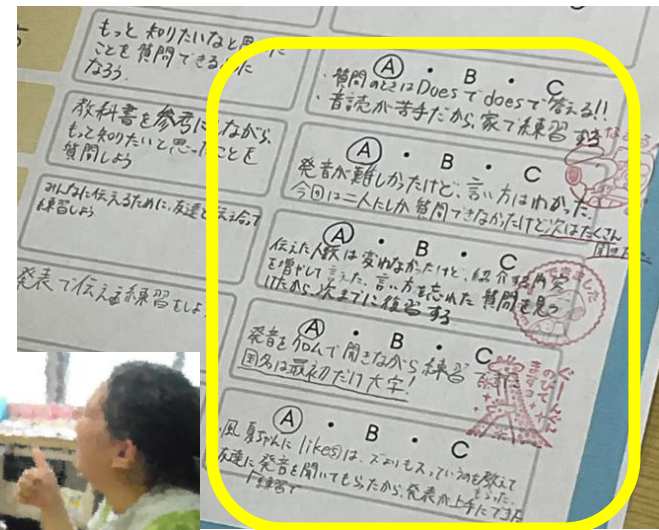 もっと知りたいなと思った
ことを質問できるように
なろう.
教科書を参考にしながら、
もっと知りたいと思ったことを
質問しよう
みんなに伝えるために、友達と伝え合って
練習しよう
発表で伝える練習をしよ
A・B・C
・質問のときはDoesでdoesで答える!!
・音読が苦手だから、家で練習する
A・B・C
発音が難しかったけど、言い方はわかった.
今回は二人にしか質問できなかったけど、次はたくさん
A・B・C
伝えた人数は変わなかったけど、紹介する内容
を増やして言えた. 言い方を忘れた 質問を見つ
けたから、次までに復習する
A・B・C
発音をクロムで聞きながら練習
国名は最初だけ大字!
A・B・C
風夏ちゃんに likes)は、ズよりもスっていうのを教えて
もらった.
友達に発音を聞いてもらったから、発表が上手にできた